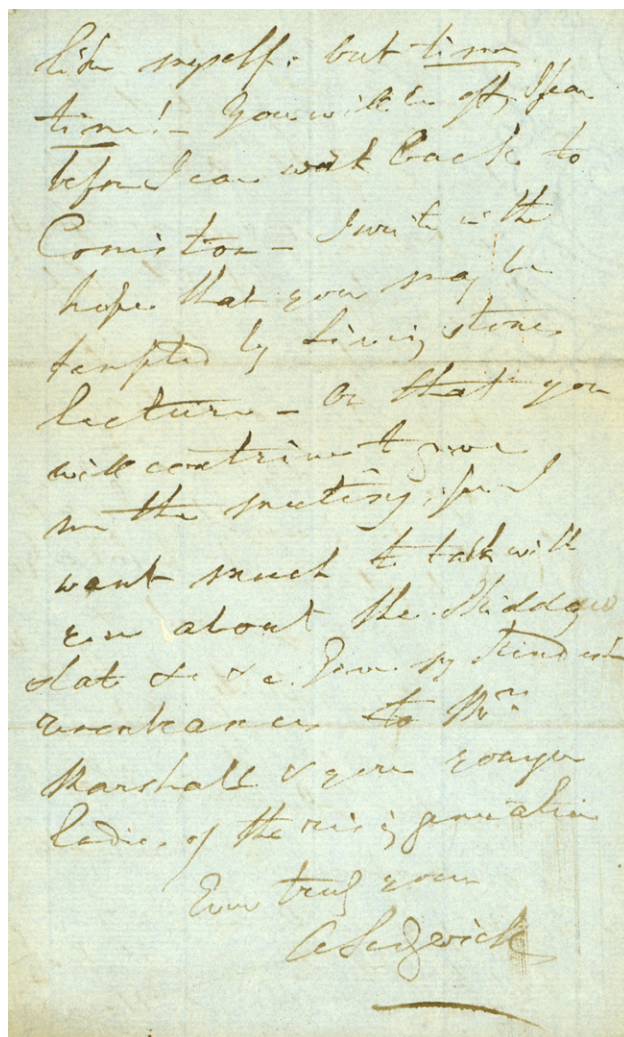 like myself: but time
time! – You will be off, I fear
before I can work back to
Coniston – I write in the
hope that you may be
tempted by Livingstone
lecture – Or that you
will contrive to give
me the meeting, for I
want much to talk with
you about the Skiddaw
slate &c &c. Give my kindest
remembrances to Mrs
Marshall & your younger
ladies of the rising generation
Ever truly yours
A Sedgwick